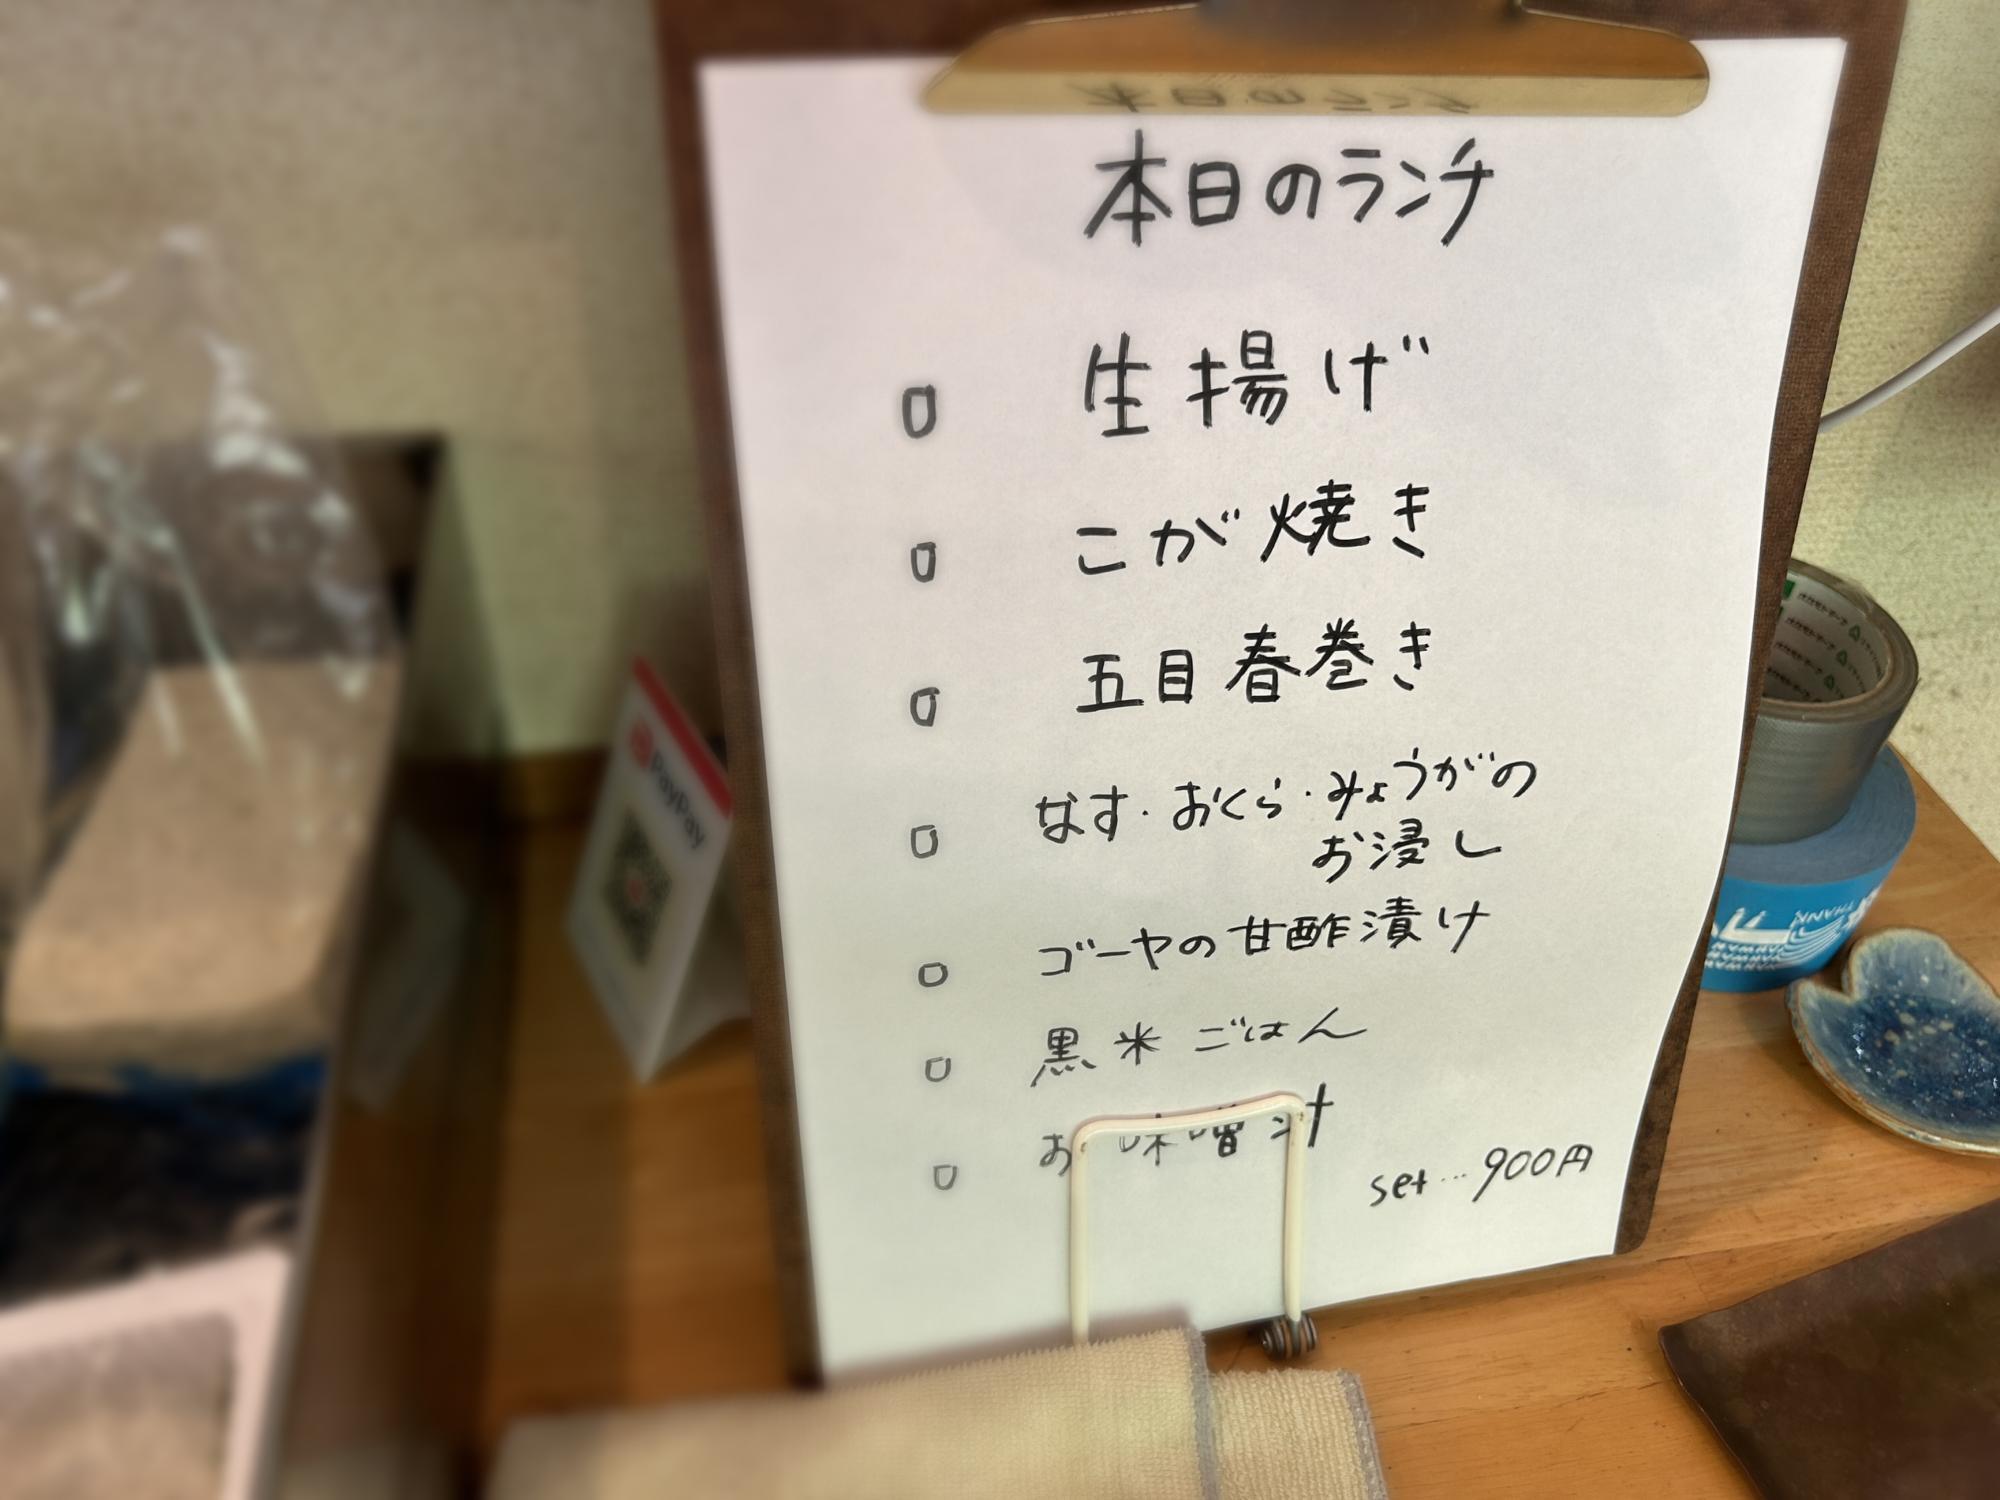 本日のランチ
生揚げ
こが焼き
五目春巻き
なす・おくら・みょうがの
お浸し
ゴーヤの甘酢漬け
黒米ごはん
お味噌汁
set…900円
PayPay
オカモトテープ
THANK